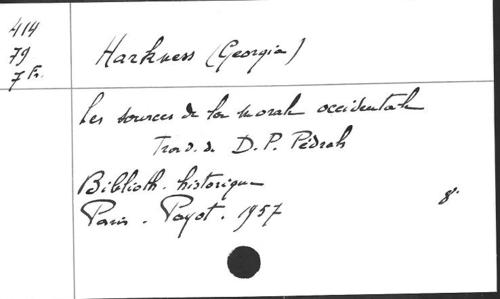 414
79
7 Fr.
Harkness (Georgia)
Les sources de la morale occidentale
Trad. de D. P. Pédrah
Biblioth. historique
Paris. Payot. 1957
8°